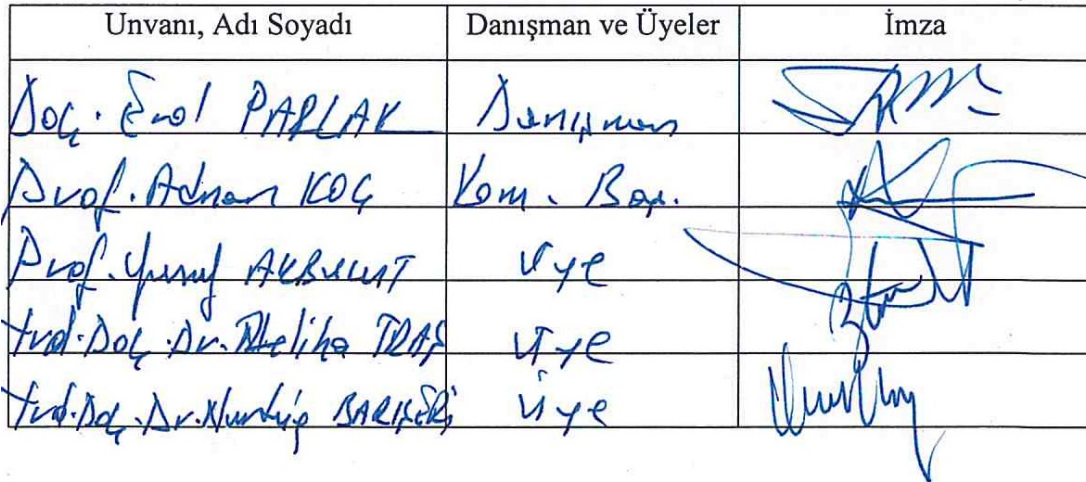 Unvanı, Adı Soyadı Danışman ve Üyeler İmza
Doç. Erol PARLAK Danışman
Prof. Adnan KOÇ Kom. Baş.
Prof. Yusuf AKBULUT Üye
Yrd. Doç. Dr. Meliha Üye
Yrd. Doç. Dr. Üye